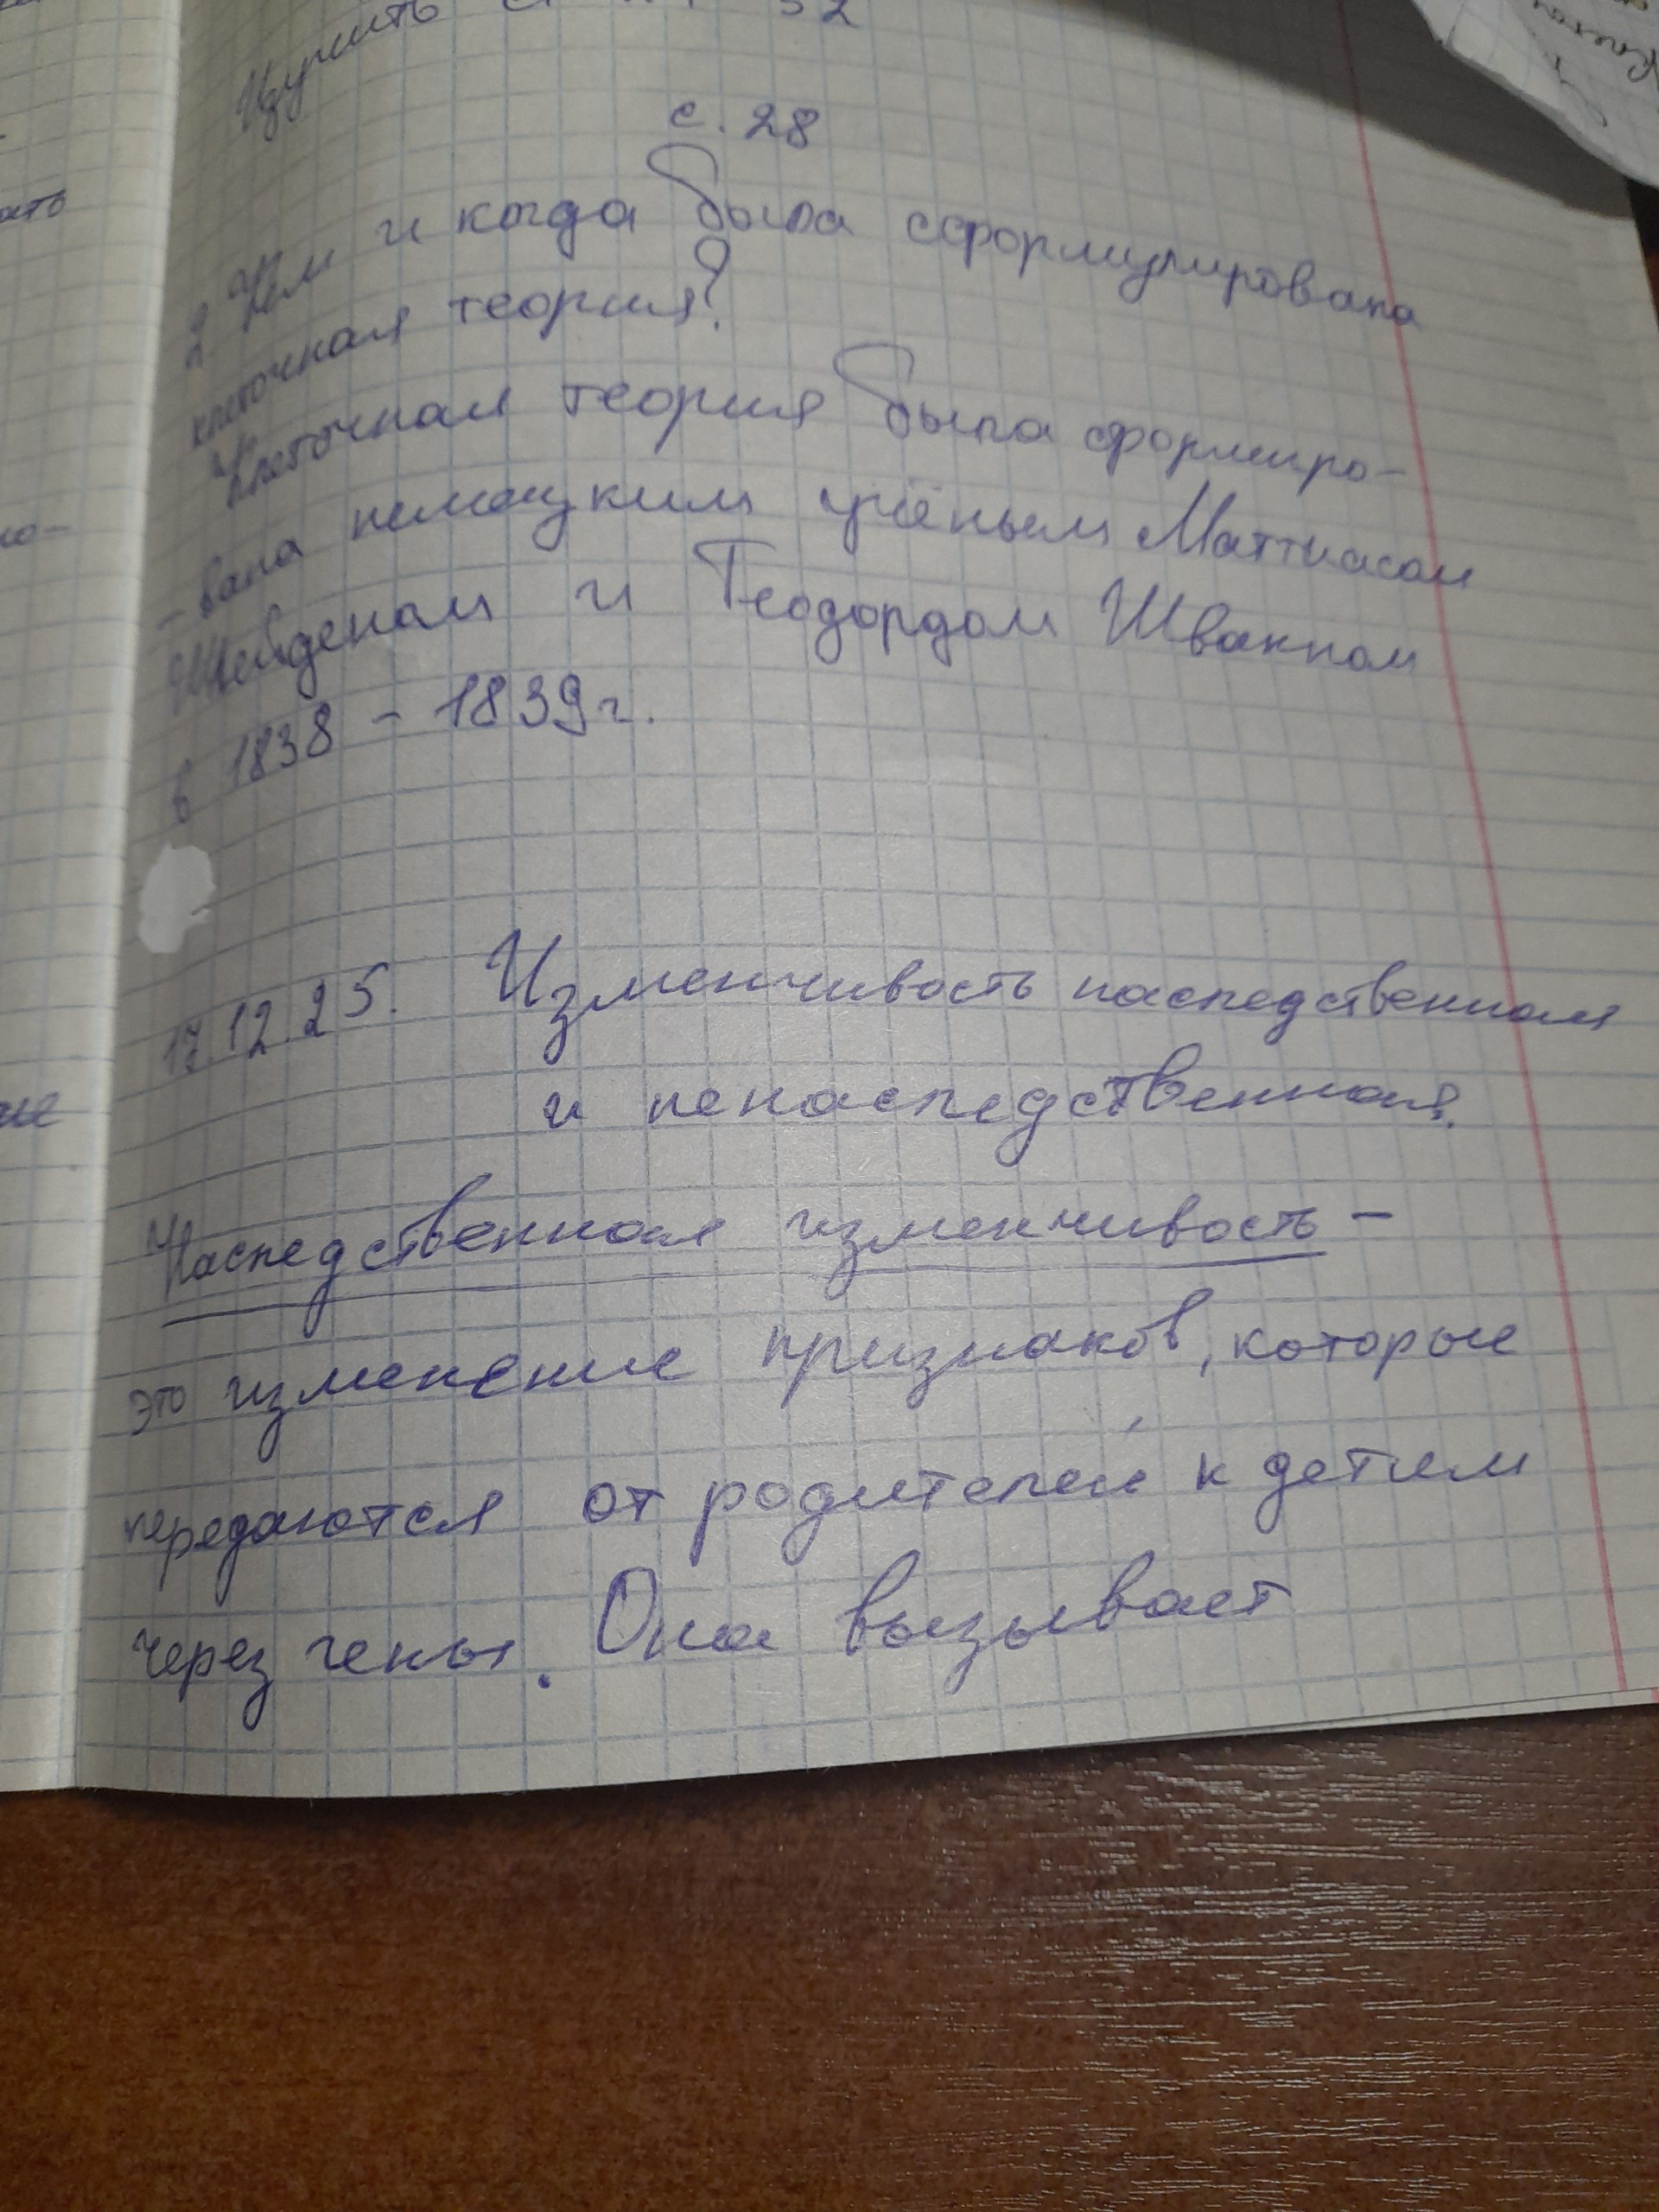 Изучить
с. 28
2. Кем и когда была сформулирована
клеточная теория?
Клеточная теория была формиро-
- вана немецким учёным Маттиасом
Шлейденом и Теодордом Шванном
в 1838 - 1839 г.
17.12.25. Изменчивость наследственная
и ненаследственная.
Наследственная изменчивость -
это изменение признаков, которые
передаются от родителей к детям
через гены. Она вызывает